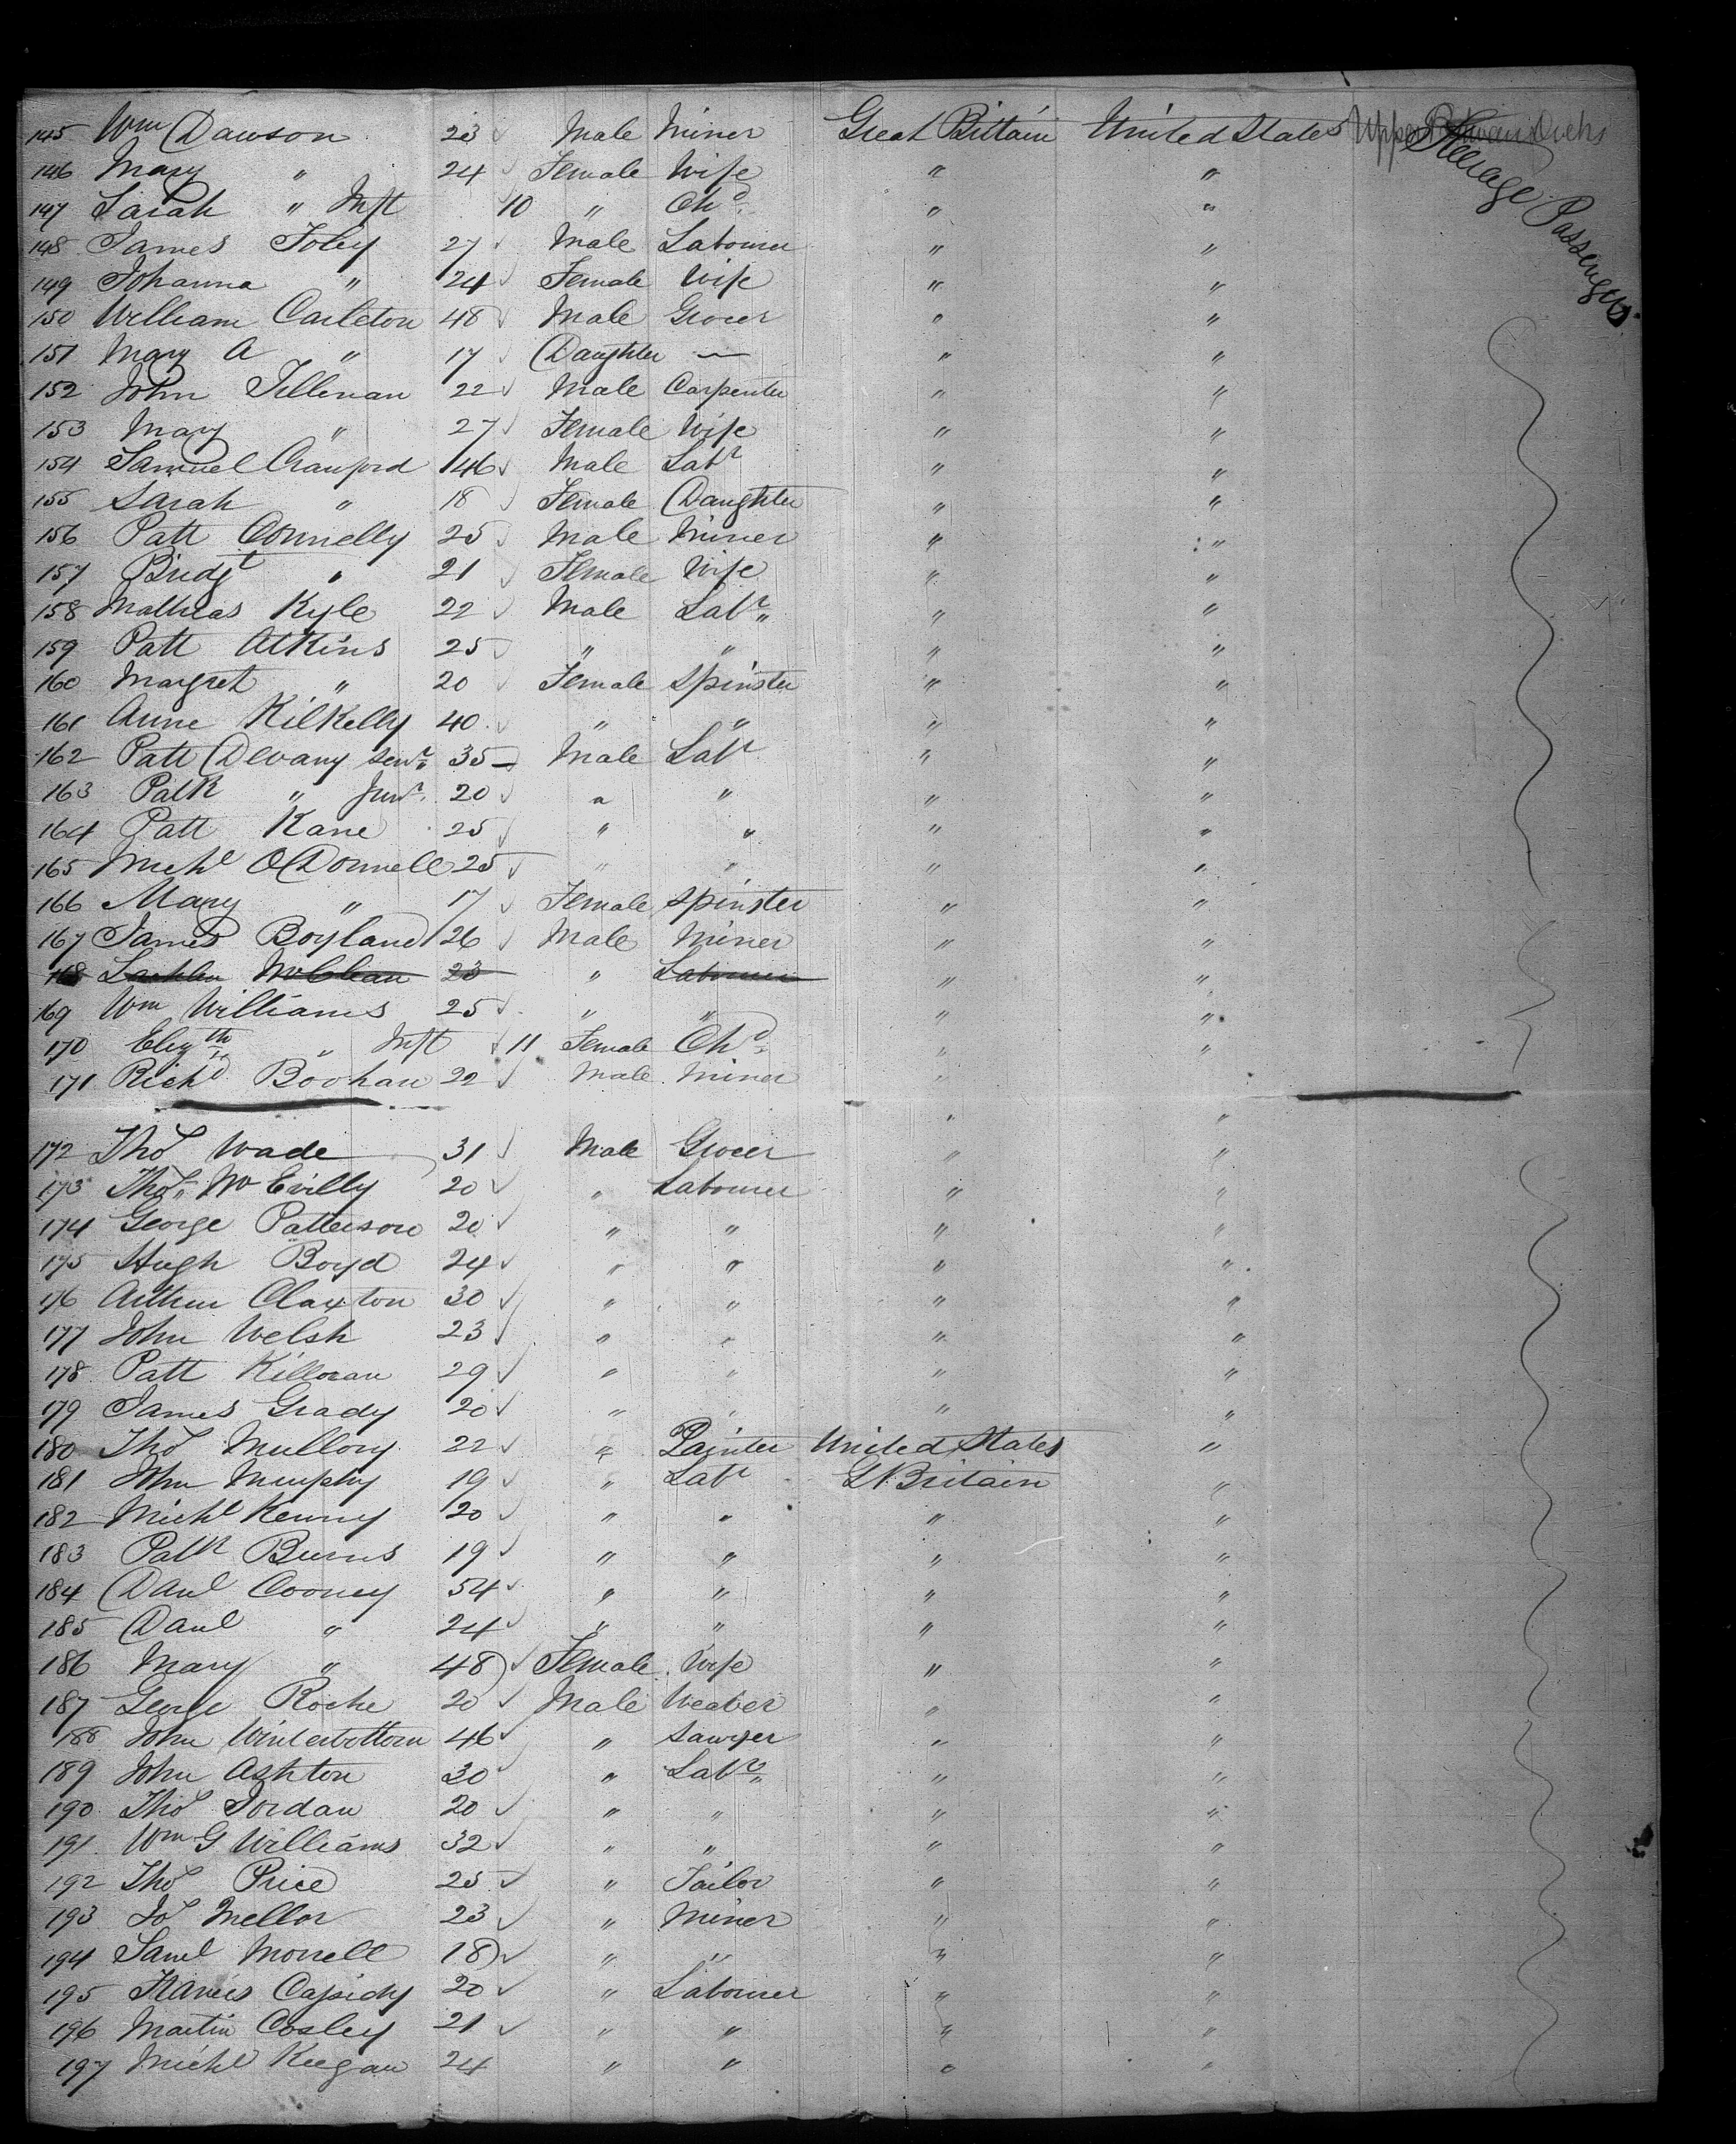 145 Wm Dawson 23 Male Miner Great Brittain United States Upper
Steerage Passengers
146 Mary " 24 Female Wife " "
147 Sarah " Inft 10 " Chd " "
148 James Foley 27 Male Labourer " "
149 Johanna " 24 Female Wife " "
150 William Carleton 48 Male Grocer " "
151 Mary A " 17 Daughter — " "
152 John Tillman 22 Male Carpenter " "
153 Mary " 27 Female Wife " "
154 Samuel Crauford 46 Male Labr " "
155 Sarah " 18 Female Daughter " "
156 Patt Connelly 25 Male Miner " "
157 Bridgt " 21 Female Wife " "
158 Mathias Kyle 22 Male Labr " "
159 Patt Atkins 25 " " " "
160 Margret " 20 Female Spinster " "
161 Anne Kilkelly 40 " " " "
162 Patt Devany Senr 35 Male Labr " "
163 Patk " Junr 20 " " " "
164 Patt Kane 25 " " " "
165 Michl O Donnell 25 " " " "
166 Mary " 17 Female Spinster " "
167 James Boyland 26 Male Miner " "
168 Lachlan McClean 23 " Labourer " "
169 Wm Williams 25 " " " "
170 Elizth " Inft 11 Female Chd " "
171 Richd Boohan 22 Male Miner " "
" "
172 Thos Wade 31 Male Grocer " "
173 Thos Mc Evilly 20 " Labourer " "
174 George Patterson 20 " " " "
175 Hugh Boyd 24 " " " "
176 Arthur Claxton 30 " " " "
177 John Welsh 23 " " " "
178 Patt Killoran 29 " " " "
179 James Grady 20 " " " "
180 Thos Mullory 22 " Painter United States "
181 John Murphy 19 " Labr Gt Britain "
182 Michl Kenny 20 " " " "
183 Patk Burns 19 " " " "
184 Danl Cooney 54 " " " "
185 Danl " 24 " " " "
186 Mary " 48 Female Wife " "
187 George Roche 20 Male Weaver " "
188 John Winterbottom 46 " Sawyer " "
189 John Ashton 30 " Labr " "
190 Thos Jordan 20 " " " "
191 Wm G Williams 32 " " " "
192 Thos Price 25 " Tailor " "
193 Jos Mellor 23 " Miner " "
194 Saml Morrell 18 " " " "
195 Francis Cassidy 20 " Labourer " "
196 Martin Cosley 21 " " " "
197 Michl Keegan 24 " " " "